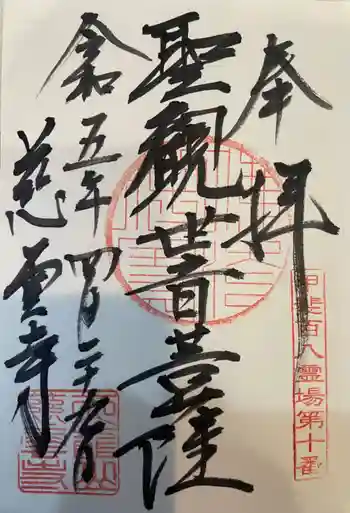 奉拝
甲斐百八霊場第十番
聖觀世音菩薩
令和五年四月二十日
慈雲寺